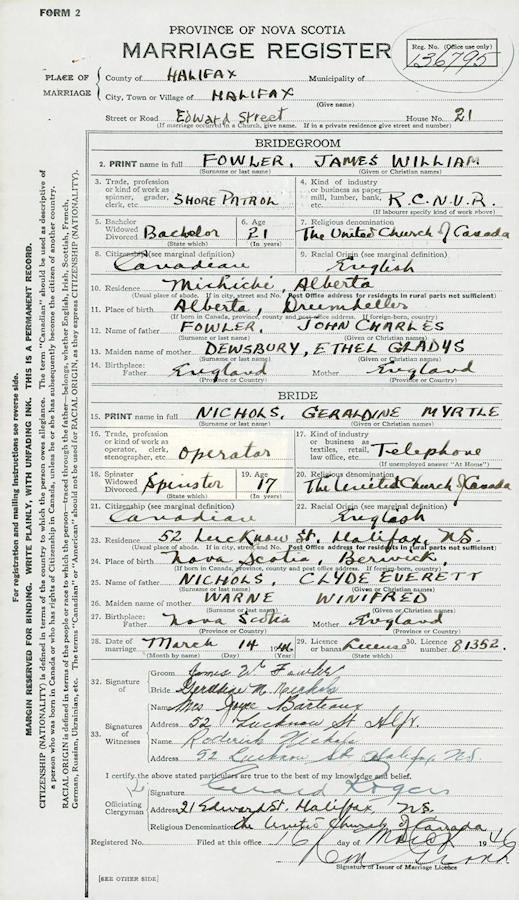 FORM 2
PROVINCE OF NOVA SCOTIA
MARRIAGE REGISTER
Reg. No. (Office use only)
136795
PLACE OF MARRIAGE
County of HALIFAX Municipality of
City, Town or Village of HALIFAX
(Give name)
Street or Road Edward Street House No. 21
(If marriage occurred in a Church, give name. If in a private residence give street and number)
BRIDEGROOM
2. PRINT name in full FOWLER, JAMES WILLIAM
(Surname or last name) (Given or Christian names)
3. Trade, profession or kind of work as spinner, grader, clerk, etc. SHORE PATROL
4. Kind of industry or business as paper mill, lumber, bank, etc. R.C.N.V.R.
(If labourer specify kind of work above)
5. Bachelor Widowed Divorced Bachelor
(State which)
6. Age 21
(In years)
7. Religious denomination The United Church of Canada
8. Citizenship (see marginal definition) Canadian
9. Racial Origin (see marginal definition) English
10. Residence Michichi, Alberta
(Usual place of abode. If in city, street and No. Post Office address for residents in rural parts not sufficient)
11. Place of birth Alberta, Drumheller
(If born in Canada, province, county and post office address. If foreign-born, country)
12. Name of father FOWLER, JOHN CHARLES
(Surname or last name) (Given or Christian names)
13. Maiden name of mother DEWSBURY, ETHEL GLADYS
(Surname or last name) (Given or Christian names)
14. Birthplace: Father England Mother England
(Province or Country) (Province or Country)
BRIDE
15. PRINT name in full NICHOLS, GERALDINE MYRTLE
(Surname or last name) (Given or Christian names)
16. Trade, profession or kind of work as operator, clerk, stenographer, etc. Operator
17. Kind of industry or business as textiles, retail, law office, etc. Telephone
(If unemployed answer "At Home")
18. Spinster Widowed Divorced Spinster
(State which)
19. Age 17
(In years)
20. Religious denomination The United Church of Canada
21. Citizenship (see marginal definition) Canadian
22. Racial Origin (see marginal definition) English
23. Residence 52 Lucknow St. Halifax, N.S.
(Usual place of abode. If in city, street and No. Post Office address for residents in rural parts not sufficient)
24. Place of birth Nova Scotia Berwick
(If born in Canada, province, county and post office address. If foreign-born, country)
25. Name of father NICHOLS, CLYDE EVERETT
(Surname or last name) (Given or Christian names)
26. Maiden name of mother WARNE WINIFRED
(Surname or last name) (Given or Christian names)
27. Birthplace: Father Nova Scotia Mother England
(Province or Country) (Province or Country)
28. Date of marriage March 14 1946
(Month by name) (Day) (Year)
29. Licence or banns License
(State which)
30. Licence number 81352.
32. Signature of
Groom James W Fowler
Bride Geraldine M. Nichols
33. Signatures of Witnesses
Name Mrs Joyce Barteaux
Address 52 Lucknow St Hlfx.
Name Roderick Nichols
Address 52 Lucknow St Halifax N.S.
I certify the above stated particulars are true to the best of my knowledge and belief.
Officiating Clergyman
Signature Gerard Rogers
Address 21 Edward St. Halifax, N.S.
Religious Denomination The United Church of Canada
Registered No. Filed at this office 16 day of March 1946
Signature of Issuer of Marriage Licence
[SEE OTHER SIDE]
For registration and mailing instructions see reverse side.
MARGIN RESERVED FOR BINDING. WRITE PLAINLY, WITH UNFADING INK. THIS IS A PERMANENT RECORD.
CITIZENSHIP (NATIONALITY) is defined in terms of the country to which the person owes allegiance. The term "Canadian" should be used as descriptive of
a person who was born in Canada or who has rights of Citizenship in Canada, unless he or she has subsequently become the citizen of another country.
RACIAL ORIGIN is defined in terms of the people or race to which the person—traced through the father—belongs, whether English, Irish, Scottish, French,
German, Russian, Ukrainian, etc. The terms "Canadian" or "American" should not be used for RACIAL ORIGIN, as they express CITIZENSHIP (NATIONALITY).